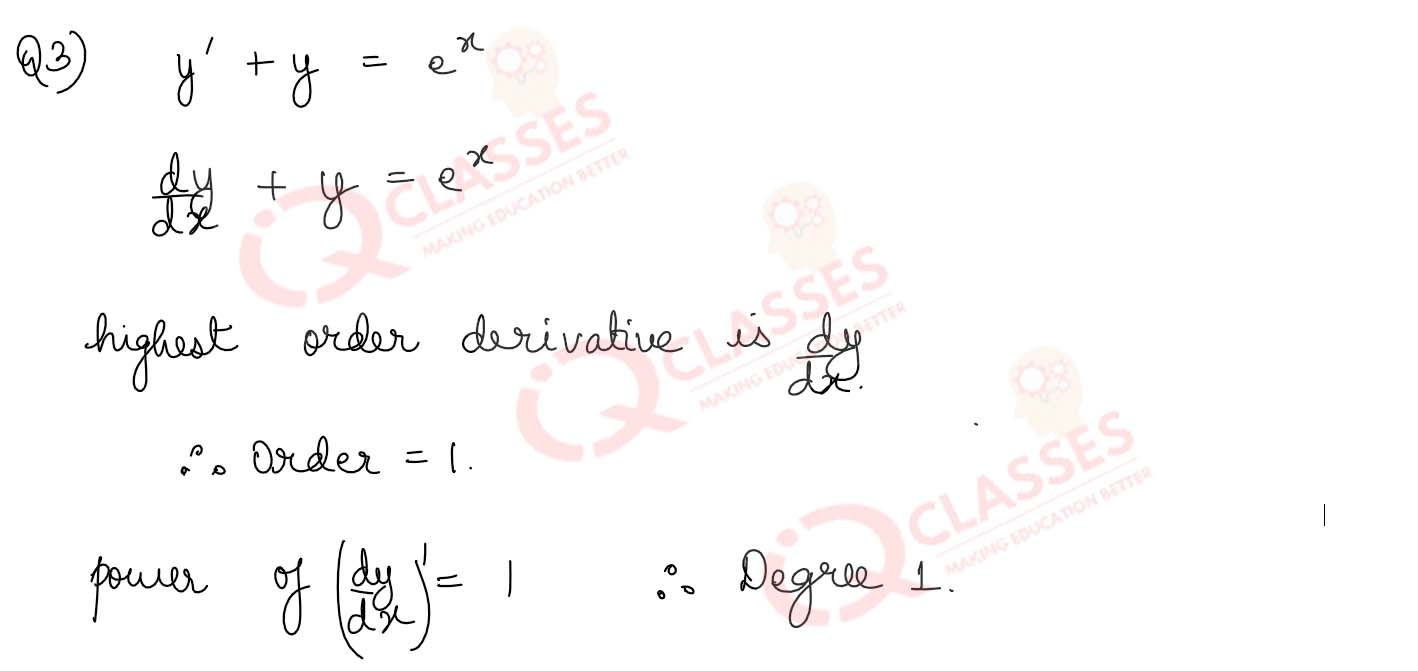 Q3) y' + y = e^x
dy/dx + y = e^x
highest order derivative is dy/dx.
∴ Order = 1.
power of (dy/dx)^1 = 1 ∴ Degree 1.
iQ CLASSES
MAKING EDUCATION BETTER
iQ CLASSES
MAKING EDUCATION BETTER
iQ CLASSES
MAKING EDUCATION BETTER